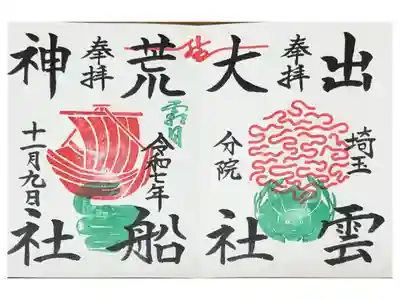 出雲
奉拝
埼玉
分院
大社
荒船
霜月
令和七年
奉拝
神社
十一月九日